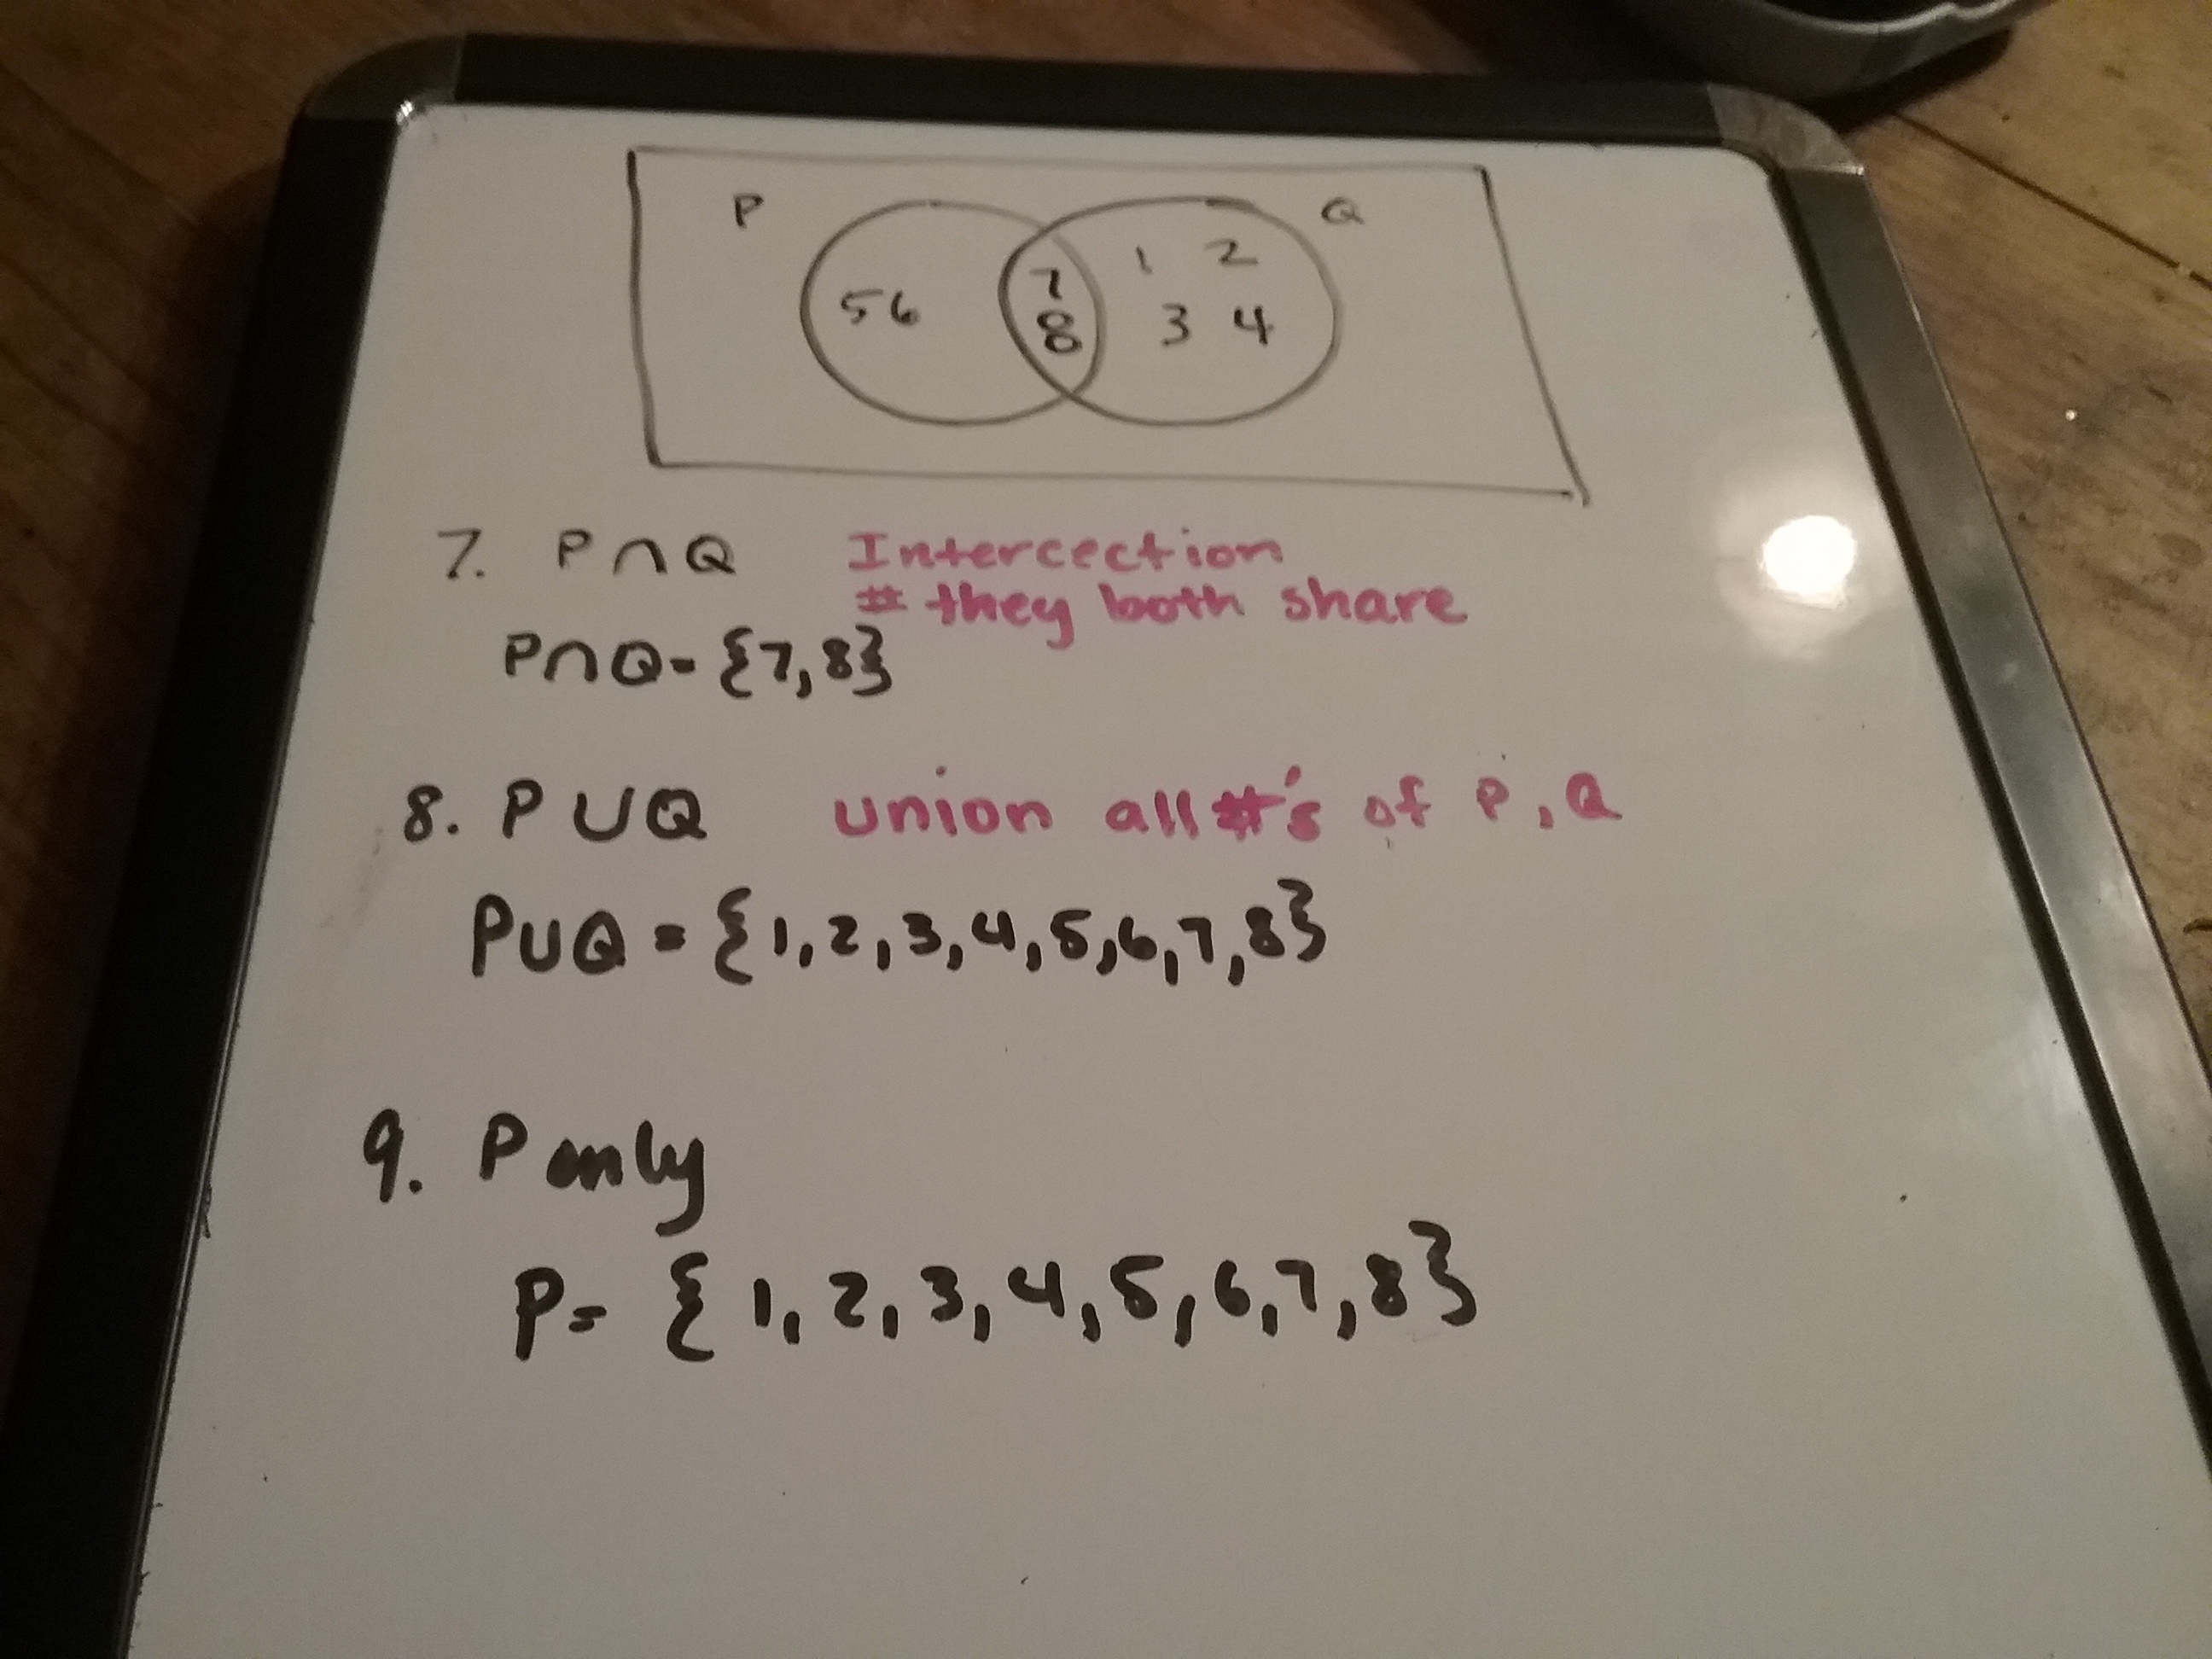 P Q
1 2
5 6 7
8 3 4
7. P∩Q Intercection
# they both share
P∩Q= {7,8}
8. P∪Q union all #'s of P, Q
P∪Q = {1,2,3,4,5,6,7,8}
9. P only
P= {1,2,3,4,5,6,7,8}